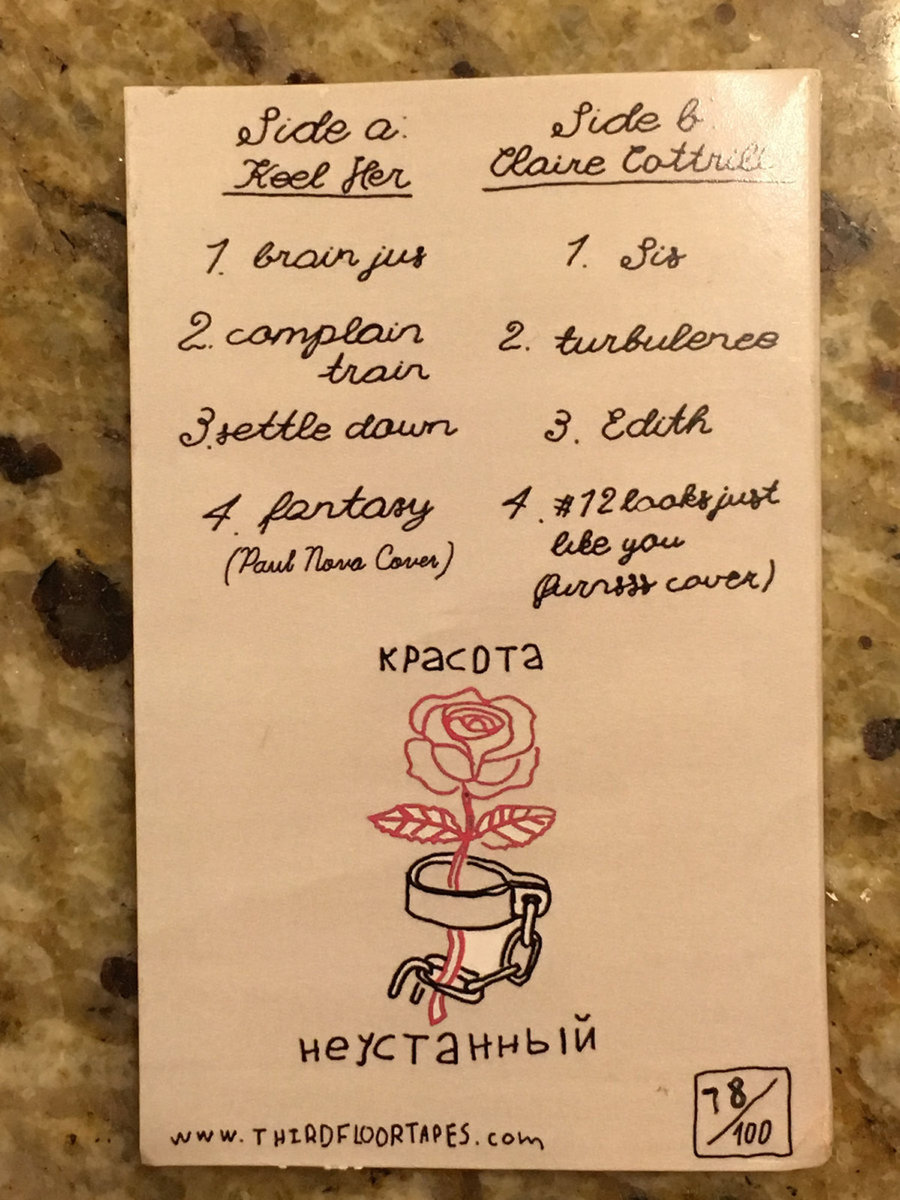 Side a:
Keel Her
1. brain jus
2. complain
train
3. settle down
4. fantasy
(Paul Nova Cover)
Side b:
Claire Cottrill
1. Sis
2. turbulence
3. Edith
4. #12 looks just
like you
(furnsss cover)
красота
неустанный
www.THIRDFLOORTAPES.com
78/100